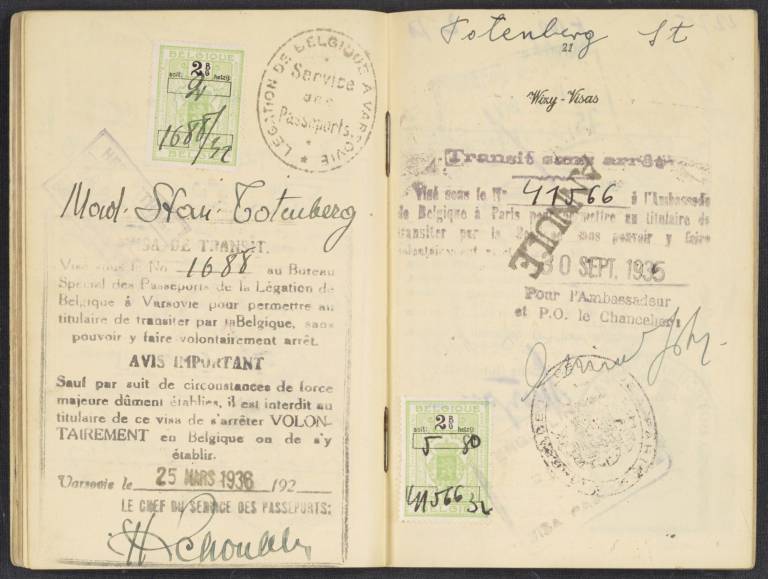 BELGIQUE
2B
soit: belzij
2
1688/32
BELGI
LEGATION DE BELGIQUE À VARSOVIE
Service
des
Passeports.
Mad. Stan. Totenberg
SA DE TRANSIT.
Visé sous le No 1688 au Bureau
Special des Passeports de la Légation de
Belgique à Varsovie pour permettre au
titulaire de transiter par la Belgique, sans
pouvoir y faire volontairement arrêt.
AVIS IMPORTANT
Sauf par suit de circonstances de force
majeure dûment établies, il est interdit au
titulaire de ce visa de s'arrêter VOLON-
TAIREMENT en Belgique on de s'y
établir.
Varsovie le 25 MARS 1936 192
LE CHEF DU SERVICE DES PASSEPORTS:
Totenberg St
21
Wizy-Visas
Transit sans arrêt
Visé sous le No 41566 à l'Ambassade
de Belgique à Paris pour permettre au titulaire de
transiter par la sans pouvoir y faire
volontairement
ANNULÉ
30 SEPT. 1935
Pour l'Ambassadeur
et P.O. le Chancelier:
BELGIQUE
2B
soit: belzij
5 80
41566 32